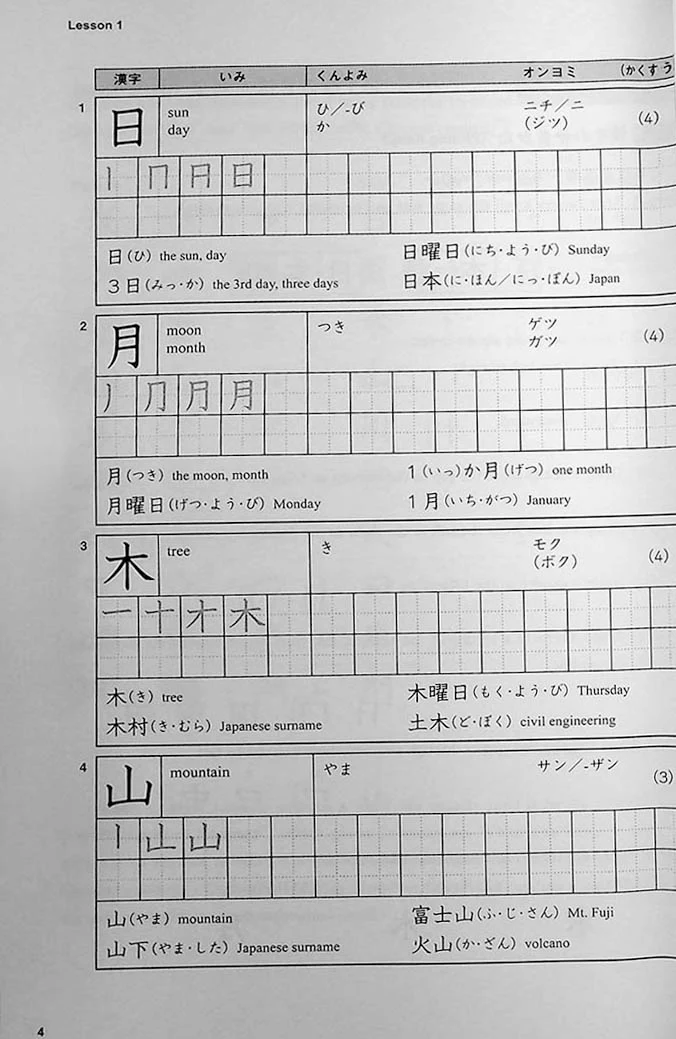 Lesson 1
漢字 いみ くんよみ オンヨミ (かくすう
1 日 sun ひ／-び ニチ／ニ (4)
day か (ジツ)
丨 冂 月 日
日(ひ) the sun, day 日曜日(にち・よう・び) Sunday
3日(みっ・か) the 3rd day, three days 日本(に・ほん／にっ・ぽん) Japan
2 月 moon つき ゲツ (4)
month ガツ
丿 冂 月 月
月(つき) the moon, month 1(いっ)か月(げつ) one month
月曜日(げつ・よう・び) Monday 1月(いち・がつ) January
3 木 tree き モク (4)
(ボク)
一 十 才 木
木(き) tree 木曜日(もく・よう・び) Thursday
木村(き・むら) Japanese surname 土木(ど・ぼく) civil engineering
4 山 mountain やま サン／-ザン (3)
丨 山 山
山(やま) mountain 富士山(ふ・じ・さん) Mt. Fuji
山下(やま・した) Japanese surname 火山(か・ざん) volcano
4